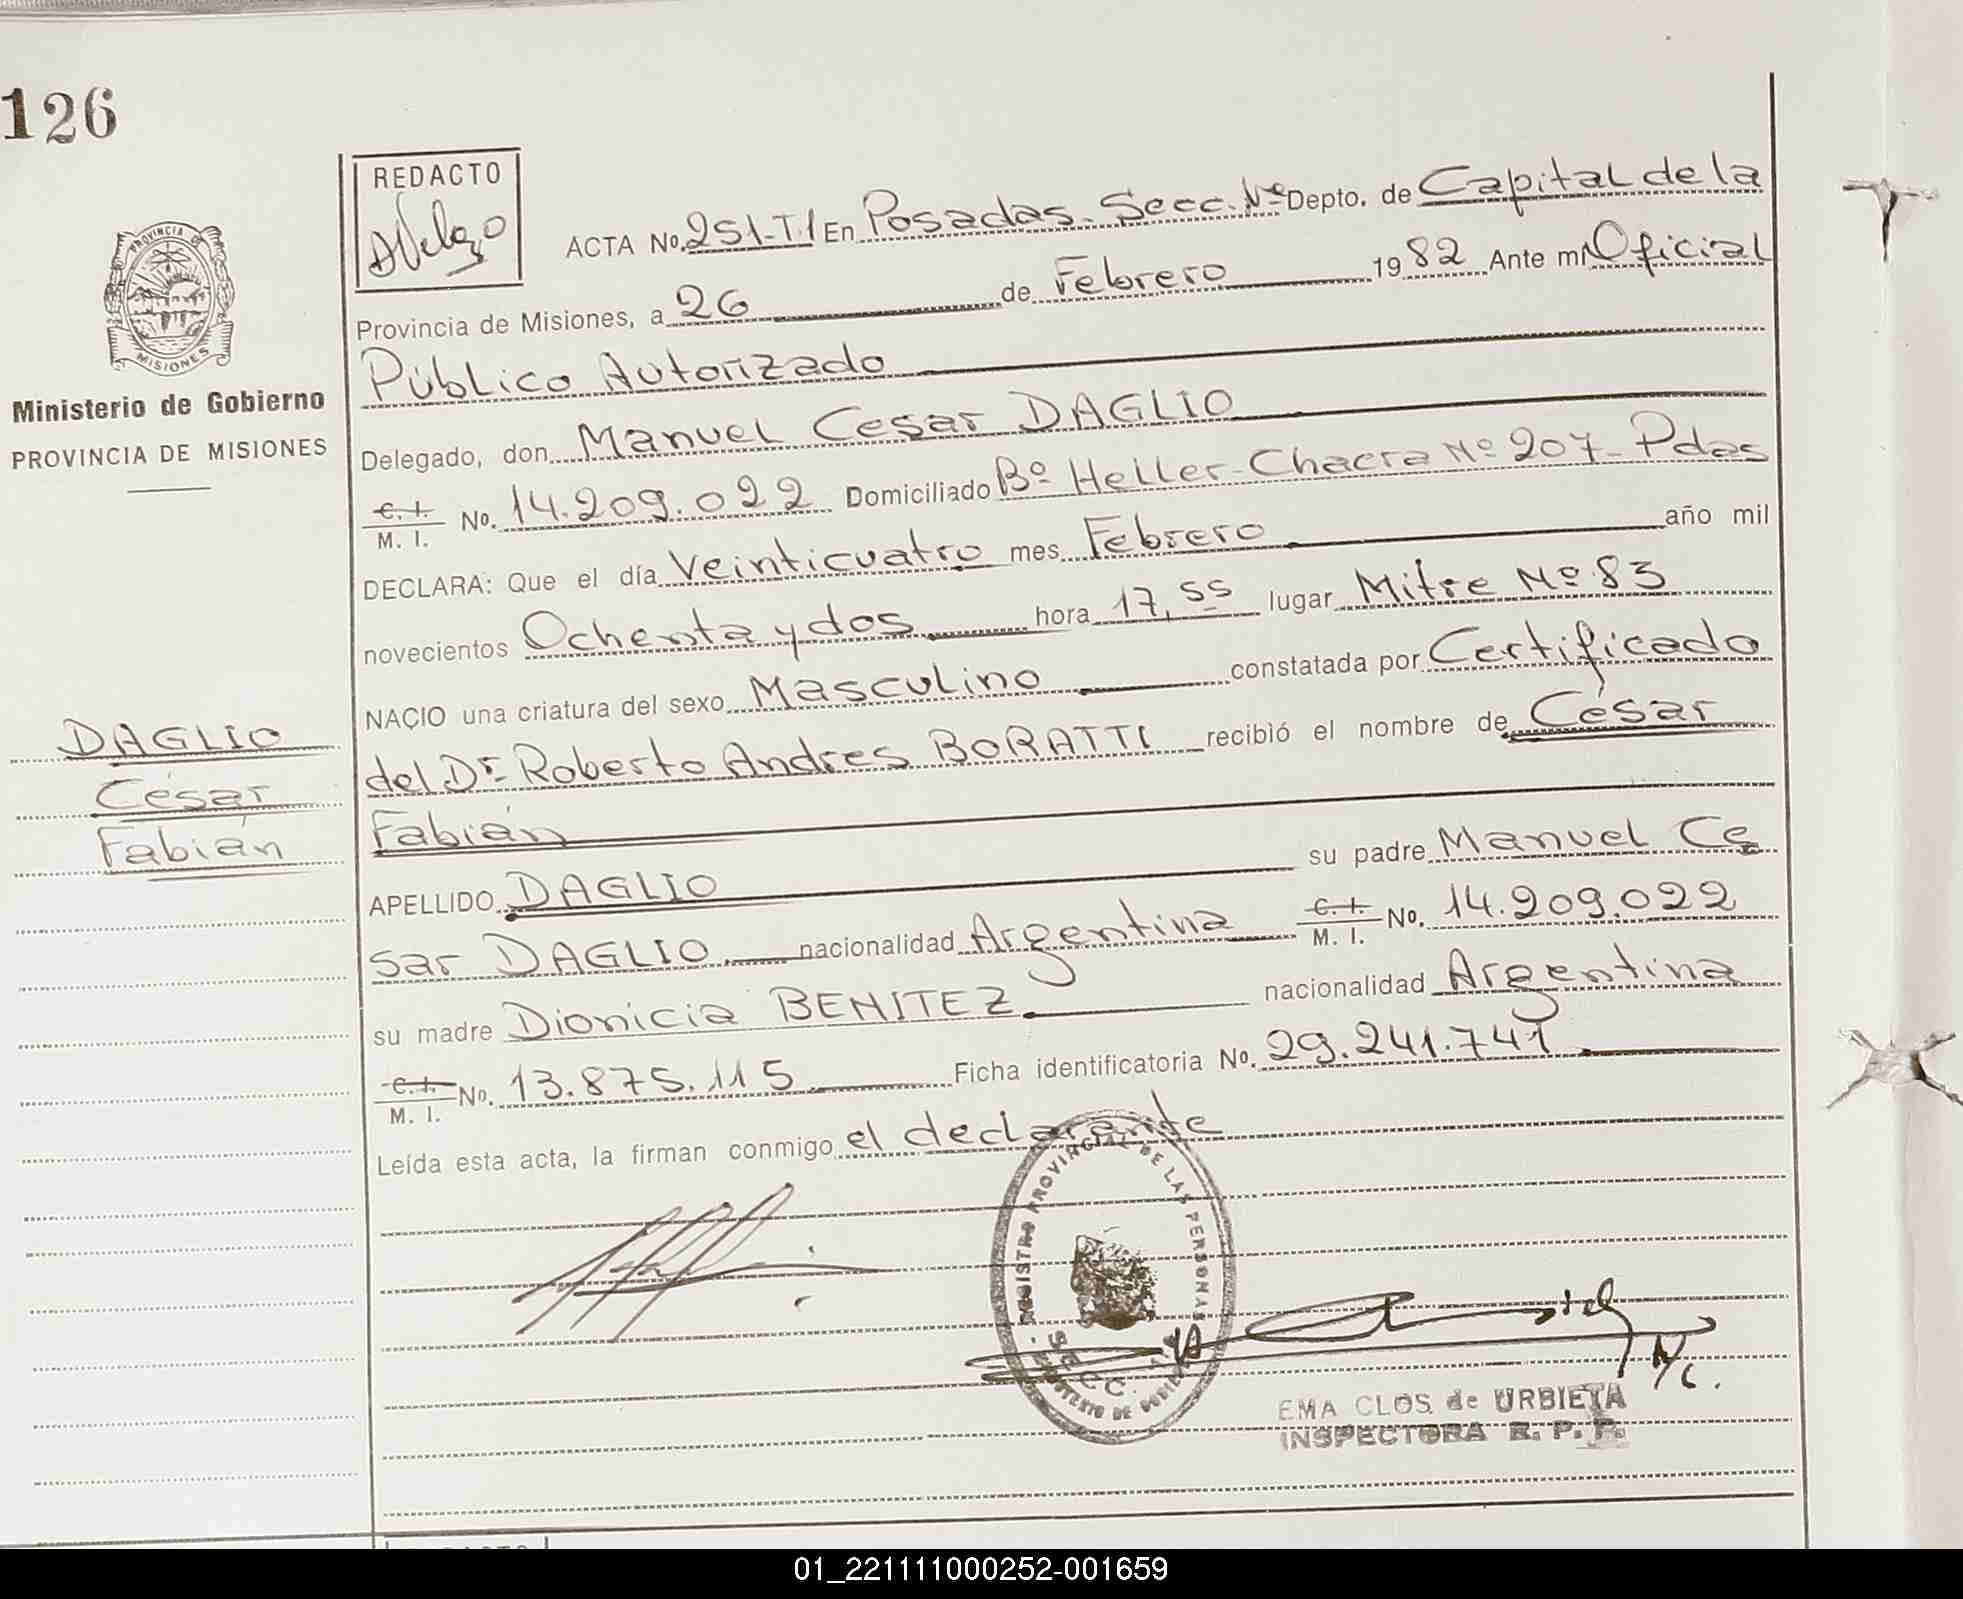 126
REDACTO
ACTA No. 251-T.1 En Posadas. Secc. Nº Depto. de Capital de la
Provincia de Misiones, a 26 de Febrero 1982 Ante mí Oficial
Público Autorizado
Delegado, don Manuel Cesar DAGLIO
C. I. / M. I. No. 14.209.022 Domiciliado Bº Heller-Chacra Nº 207-Pdas
DECLARA: Que el día Veinticuatro mes Febrero año mil
novecientos Ochenta y dos hora 17,55 lugar Mitre Nº 83
NACIO una criatura del sexo Masculino constatada por Certificado
del Dr. Roberto Andres BORATTI recibió el nombre de César
Fabián
APELLIDO DAGLIO su padre Manuel Ce
sar DAGLIO nacionalidad Argentina C. I. / M. I. No. 14.209.022
su madre Dionicia BENITEZ nacionalidad Argentina
C. I. / M. I. No. 13.875.115 Ficha identificatoria No. 29.241.741
Leída esta acta, la firman conmigo el declarante
PROVINCIA DE
MISIONES
Ministerio de Gobierno
PROVINCIA DE MISIONES
DAGLIO
César
Fabián
REGISTRO PROVINCIAL DE LAS PERSONAS
MINISTERIO DE GOBIERNO
Secc.
EMA CLOS de URBIETA
INSPECTORA R. P. P.
01_221111000252-001659